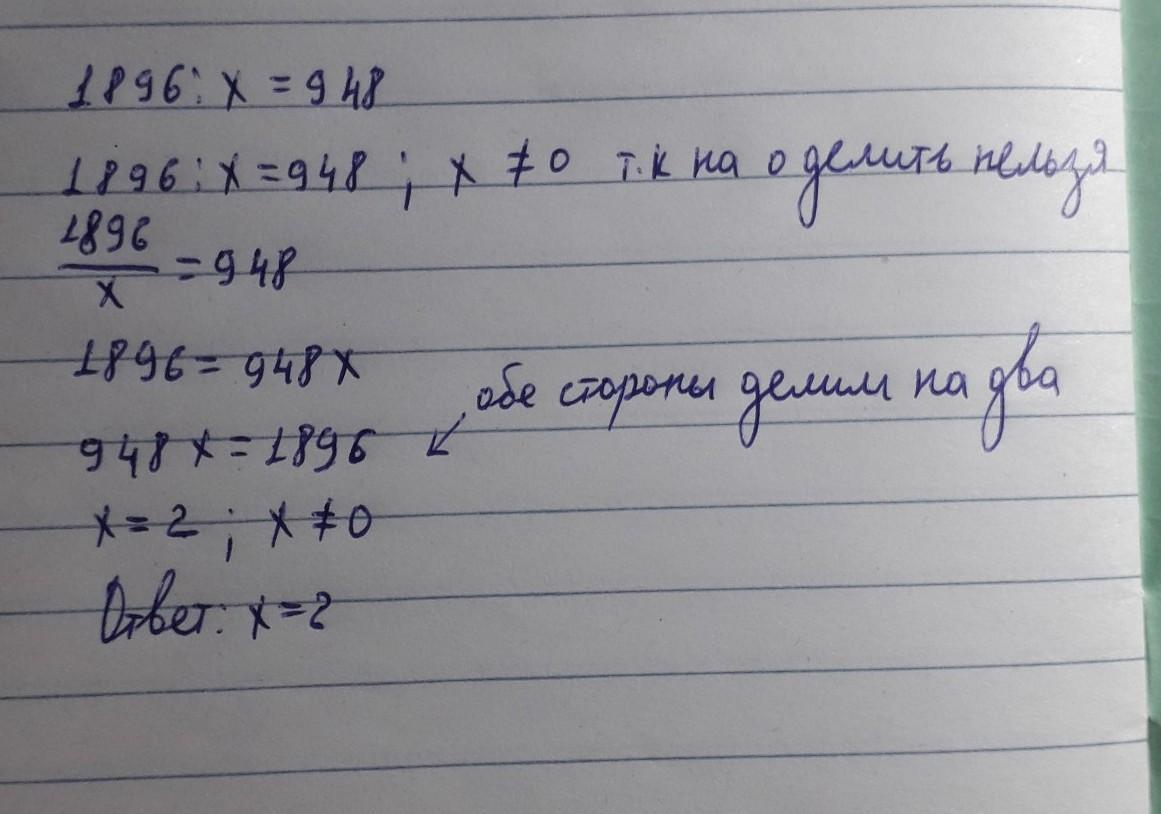 1896 : x = 948
1896 : x = 948 ; x ≠ 0 т.к на 0 делить нельзя
1896
x
= 948
1896 = 948 x
обе стороны делим на два
948 x = 1896 ↙
x = 2 ; x ≠ 0
Ответ: x = 2